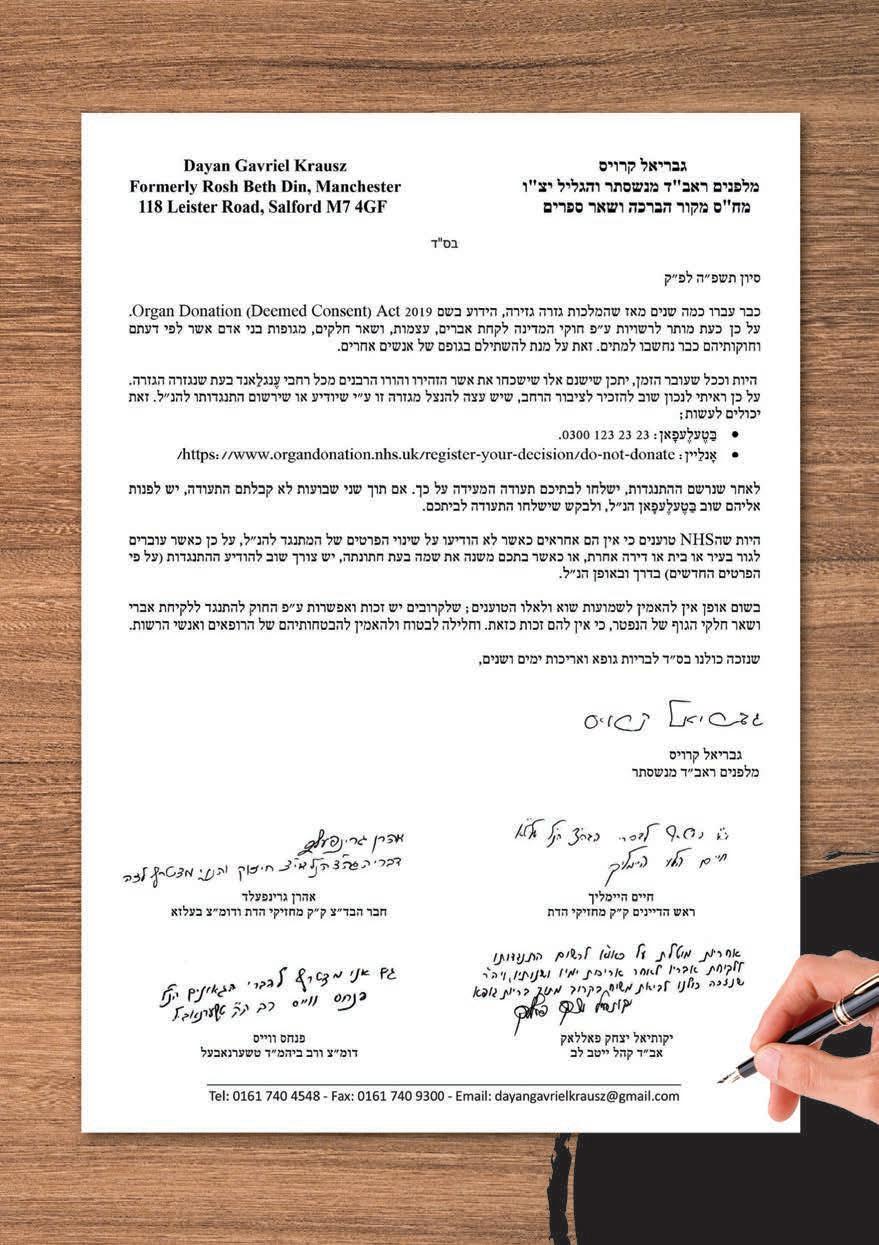 Dayan Gavriel Krausz
Formerly Rosh Beth Din, Manchester
118 Leister Road, Salford M7 4GF
גבריאל קרויס
מלפנים ראב"ד מנשסתר והגליל יצ"ו
מח"ס מקור הברכה ושאר ספרים
בס"ד
סיון תשפ״ה לפ״ק
כבר עברו כמה שנים מאז שהמלכות גזרה גזירה, הידוע בשם Organ Donation (Deemed Consent) Act 2019.
על כן כעת מותר לרשויות ע״פ חוקי המדינה לקחת אברים, עצמות, ושאר חלקים, מגופות בני אדם אשר לפי דעתם
וחוקותיהם כבר נחשבו למתים. זאת על מנת להשתילם בגופם של אנשים אחרים.
היות וככל שעובר הזמן, יתכן שישנם אלו שישכחו את אשר הזהירו והורו הרבנים מכל רחבי ענגלאנד בעת שנגזרה הגזרה.
על כן ראיתי לנכון שוב להזכיר לציבור הרחב, שיש עצה להנצל מגזרה זו ע״י שיודיע או שירשום התנגדותו להנ״ל. זאת
יכולים לעשות;
• בַּטֶעלֶעפָאן: 0300 123 23 23.
• אָנלַיין: https://www.organdonation.nhs.uk/register-your-decision/do-not-donate/
לאחר שנרשם ההתנגדות, ישלחו לבתיכם תעודה המעידה על כך. אם תוך שני שבועות לא קבלתם התעודה, יש לפנות
אליהם שוב בַּטֶעלֶעפָאן הנ״ל, ולבקש שישלחו התעודה לביתכם.
היות שהNHS טוענים כי אין הם אחראים כאשר לא הודיעו על שינוי הפרטים של המתנגד להנ״ל, על כן כאשר עוברים
לגור בעיר או בית או דירה אחרת, או כאשר בתכם משנה את שמה בעת חתונתה, יש צורך שוב להודיע ההתנגדות (על פי
הפרטים החדשים) בדרך ובאופן הנ״ל.
בשום אופן אין להאמין לשמועות שוא ולאלו הטוענים; שלקרובים יש זכות ואפשרות ע״פ החוק להתנגד ללקיחת אברי
ושאר חלקי הגוף של הנפטר, כי אין להם זכות כזאת. וחלילה לבטוח ולהאמין להבטחותיהם של הרופאים ואנשי הרשות.
שנזכה כולנו בס״ד לבריות גופא ואריכות ימים ושנים,
גבריאל קרויס
גבריאל קרויס
מלפנים ראב״ד מנשסתר
חיים הלוי היימליק
חיים היימליך
ראש הדיינים ק״ק מחזיקי הדת
אהרן גרינפעלד
אהרן גרינפעלד
חבר הבד״צ ק״ק מחזיקי הדת ודומ״צ בעלזא
אחריות מוטלת על כאו"א לרשום התנגדותו
ללקיחת אבריו לאחר אריכת ימיו ושנותיו, ויה"ר
שנזכה כולנו לביאת משיח בקרוב מתוך בריות גופא
יקותיאל יצחק פאללאק
אב״ד קהל ייטב לב
גם אני מצטרף לדברי הגאונים הנ"ל
פנחס ווייס
פנחס ווייס
דומ״צ ורב ביהמ״ד טשערנאבעל
Tel: 0161 740 4548 - Fax: 0161 740 9300 - Email: dayangavrielkrausz@gmail.com